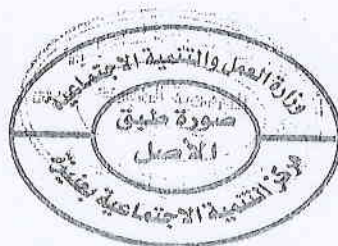 وزارة العمل والتنمية الاجتماعية
صورة طبق
الأصل
مركز التنمية الاجتماعية بعنيزة